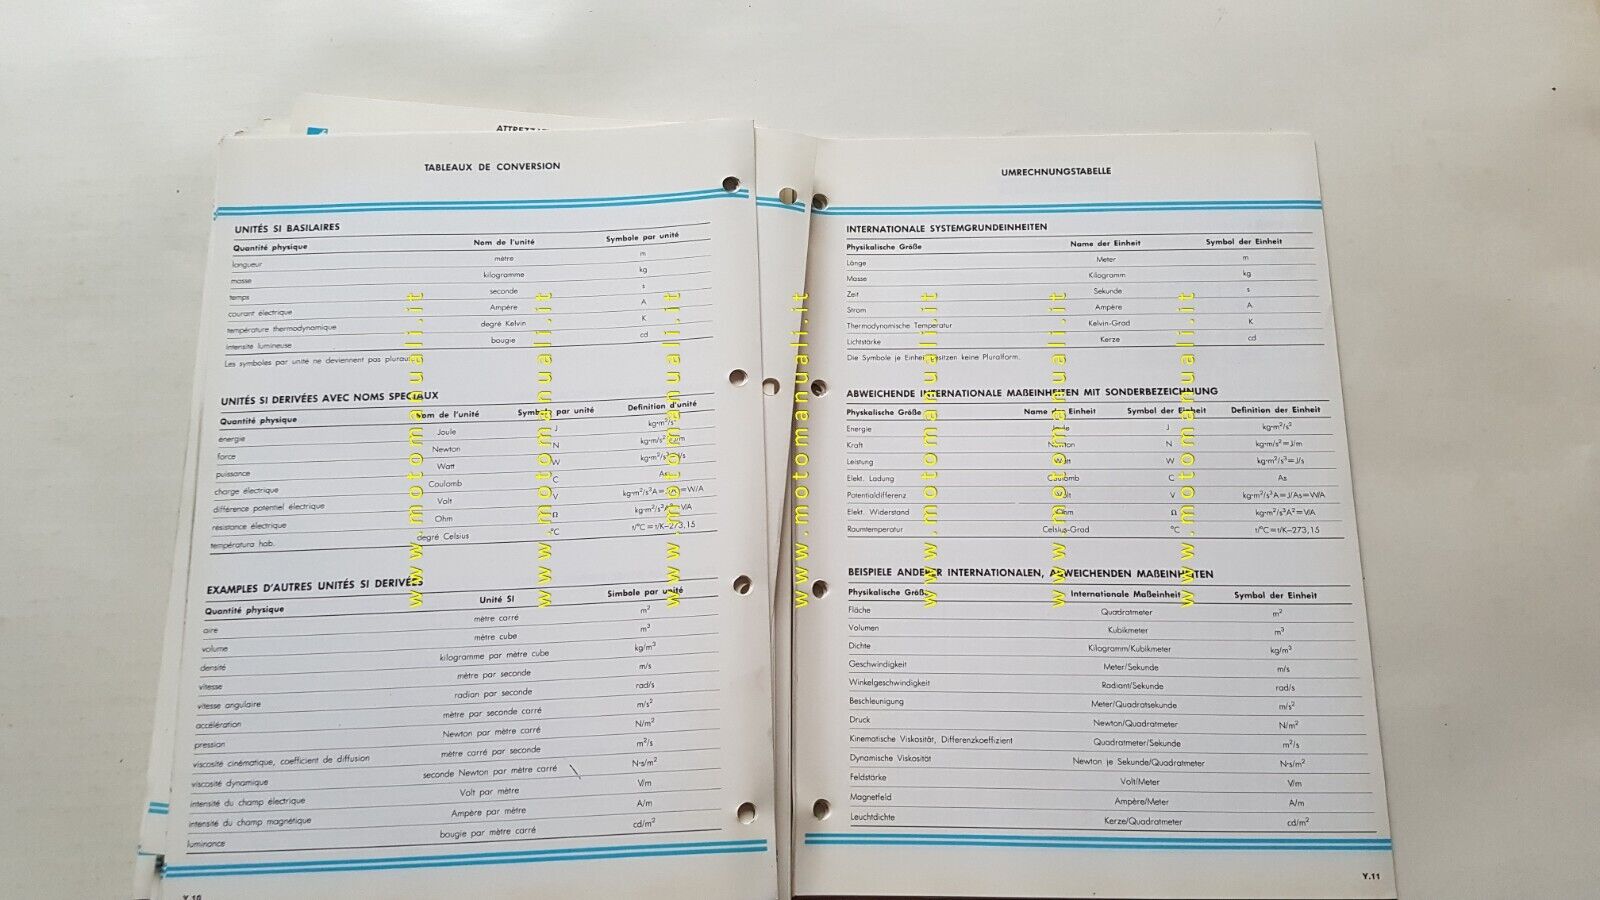 TABLEAUX DE CONVERSION
UNITÉS SI BASILAIRES
Quantité physique Nom de l'unité Symbole par unité
longueur mètre m
masse kilogramme kg
temps seconde s
courant électrique Ampère A
température thermodynamique degré Kelvin K
intensité lumineuse bougie cd
Les symboles par unité ne deviennent pas
UNITÉS SI DERIVÉES AVEC NOMS SPECIAUX
Quantité physique Nom de l'unité Symbole par unité Definition d'unité
énergie Joule J kg·m²/s²
force Newton N kg·m/s²
puissance Watt W
charge électrique Coulomb C As
différence potentiel électrique Volt V
résistance électrique Ohm Ω
températura hab. degré Celsius °C t/°C=t/K–273,15
EXAMPLES D'AUTRES UNITÉS SI DERIVÉES
Quantité physique Unité SI Simbole par unité
aire mètre carré m²
volume mètre cube m³
densité kilogramme par mètre cube kg/m³
vitesse mètre par seconde m/s
vitesse angulaire radian par seconde rad/s
accélération mètre par seconde carré m/s²
pression Newton par mètre carré N/m²
viscosité cinématique, coefficient de diffusion mètre carré par seconde m²/s
viscosité dynamique seconde Newton par mètre carré N·s/m²
intensité du champ électrique Volt par mètre V/m
intensité du champ magnétique Ampère par mètre A/m
luminance bougie par mètre carré cd/m²
Y.10
UMRECHNUNGSTABELLE
INTERNATIONALE SYSTEMGRUNDEINHEITEN
Physikalische Größe Name der Einheit Symbol der Einheit
Länge Meter m
Masse Kilogramm kg
Zeit Sekunde s
Strom Ampère A
Thermodynamische Temperatur Kelvin-Grad K
Lichtstärke Kerze cd
Die Symbole je Einheit besitzen keine Pluralform.
ABWEICHENDE INTERNATIONALE MAßEINHEITEN MIT SONDERBEZEICHNUNG
Physkalische Größe Name der Einheit Symbol der Einheit Definition der Einheit
Energie Joule J kg·m²/s²
Kraft Newton N kg·m/s²=J/m
Leistung Watt W kg·m²/s³=J/s
Elekt. Ladung Coulomb C As
Potentialdifferenz Volt V kg·m²/s³A=J/As=W/A
Elekt. Widerstand Ohm Ω kg·m²/s³A²=V/A
Raumtemperatur Celsius-Grad °C t/°C=t/K–273,15
BEISPIELE ANDERER INTERNATIONALEN, ABWEICHENDEN MAßEINHEITEN
Physikalische Größe Internationale Maßeinheit Symbol der Einheit
Fläche Quadratmeter m²
Volumen Kubikmeter m³
Dichte Kilogramm/Kubikmeter kg/m³
Geschwindigkeit Meter/Sekunde m/s
Winkelgeschwindigkeit Radiant/Sekunde rad/s
Beschleunigung Meter/Quadratsekunde m/s²
Druck Newton/Quadratmeter N/m²
Kinematische Viskosität, Differenzkoeffizient Quadratmeter/Sekunde m²/s
Dynamische Viskosität Newton je Sekunde/Quadratmeter N·s/m²
Feldstärke Volt/Meter V/m
Magnetfeld Ampère/Meter A/m
Leuchtdichte Kerze/Quadratmeter cd/m²
Y.11
www.motomanuali.it
www.motomanuali.it
www.motomanuali.it
www.motomanuali.it
www.motomanuali.it
www.motomanuali.it
www.motomanuali.it